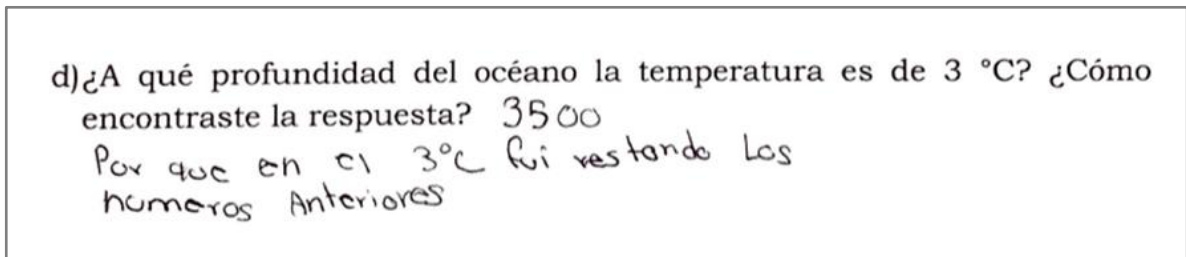 d)¿A qué profundidad del océano la temperatura es de 3 °C? ¿Cómo
encontraste la respuesta? 3500
Por que en el 3°C fui restando Los
numeros Anteriores